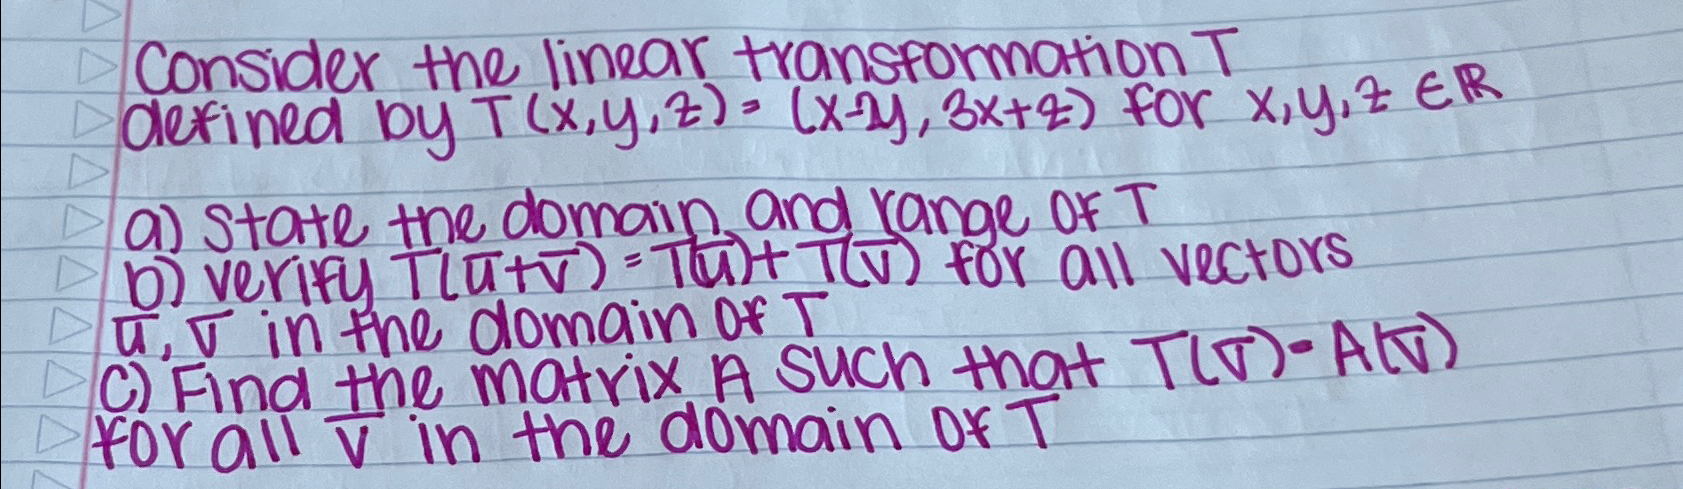 Consider the linear transformation T
defined by T(x,y,z) = (x-2y, 3x+z) for x,y,z ∈ℝ
a) State the domain and range of T
b) verify T(u̅+v̅) = T(u̅)+ T(v̅) for all vectors
u̅, v̅ in the domain of T
c) Find the matrix A such that T(v̅) = A(v̅)
for all v̅ in the domain of T